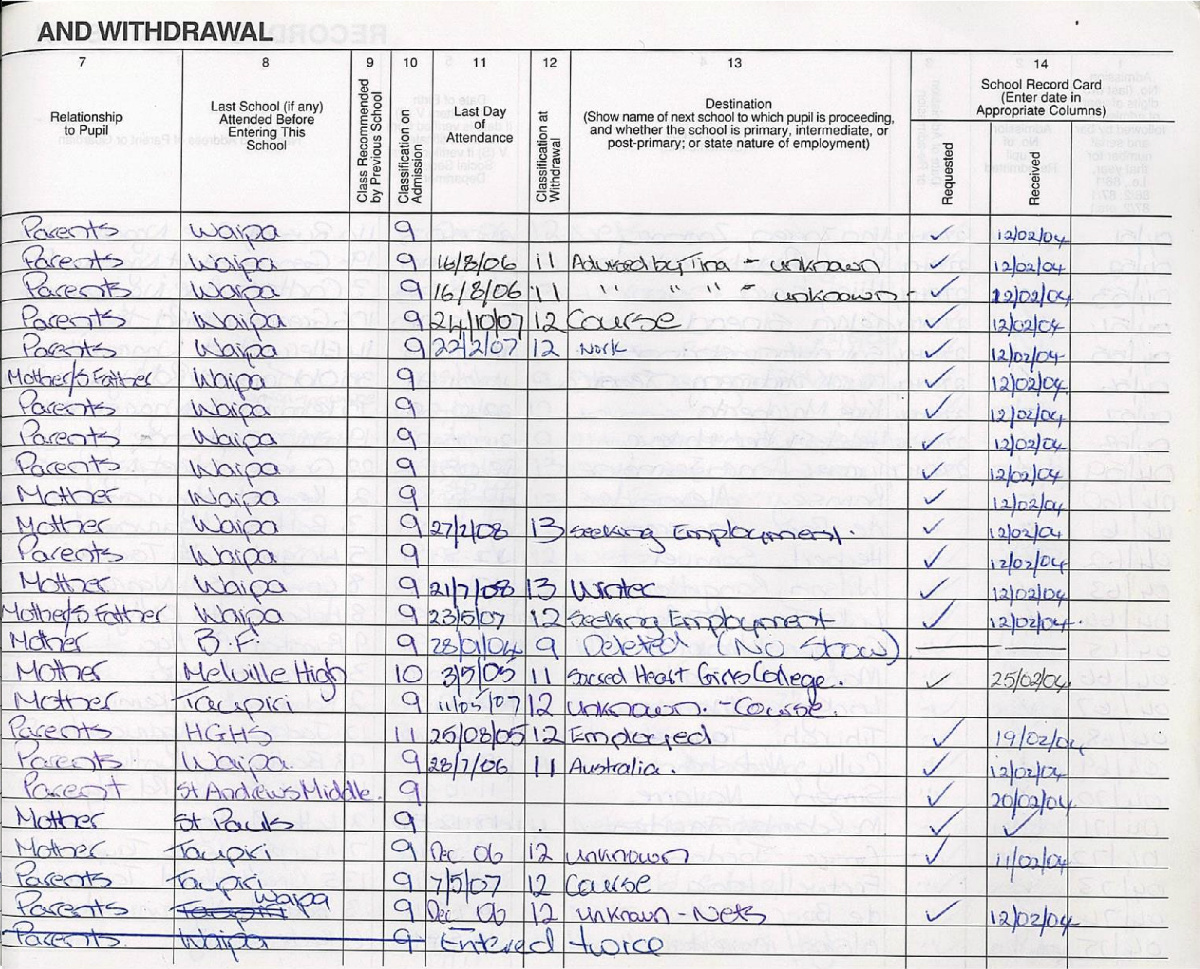 AND WITHDRAWAL
7 8 9 10 11 12 13 14
Relationship to Pupil
Last School (if any) Attended Before Entering This School
Class Recommended by Previous School
Classification on Admission
Last Day of Attendance
Classification at Withdrawal
Destination
(Show name of next school to which pupil is proceeding, and whether the school is primary, intermediate, or post-primary; or state nature of employment)
School Record Card (Enter date in Appropriate Columns)
Requested
Received
Parents Waipa 9 ✓ 12/02/04
Parents Waipa 9 16/8/06 11 Advised by Tina - unknown ✓ 12/02/04
Parents Waipa 9 16/8/06 11 " " " - unknown ✓ 12/02/04
Parents Waipa 9 24/10/07 12 Course ✓ 12/02/04
Parents Waipa 9 22/2/07 12 Work ✓ 12/02/04
Mother/S Father Waipa 9 ✓ 12/02/04
Parents Waipa 9 ✓ 12/02/04
Parents Waipa 9 ✓ 12/02/04
Parents Waipa 9 ✓ 12/02/04
Mother Waipa 9 ✓ 12/02/04
Mother Waipa 9 27/2/08 13 Seeking Employment. ✓ 12/02/04
Parents Waipa 9 ✓ 12/02/04
Mother Waipa 9 21/7/08 13 Wintec ✓ 12/02/04
Mother/S Father Waipa 9 23/5/07 12 Seeking Employment ✓ 12/02/04
Mother B.F. 9 28/01/04 9 Deleted (No Show)
Mother Melville High 10 3/5/05 11 Sacred Heart Girls College. ✓ 25/02/04
Mother Taupiri 9 11/05/07 12 unknown. - Course.
Parents HGHS 11 25/08/05 12 Employed ✓ 19/02/04
Parents Waipa 9 28/7/06 11 Australia. ✓ 12/02/04
Parent St Andrews Middle. 9 ✓ 20/02/04
Mother St Pauls 9 ✓ ✓
Mother Taupiri 9 Dec 06 12 unknown ✓ 11/02/04
Parents Taupiri 9 7/5/07 12 Course
Parents Taupiri Waipa 9 Dec 06 12 unknown - Nets ✓ 12/02/04
Parents Waipa 9 Entered twice